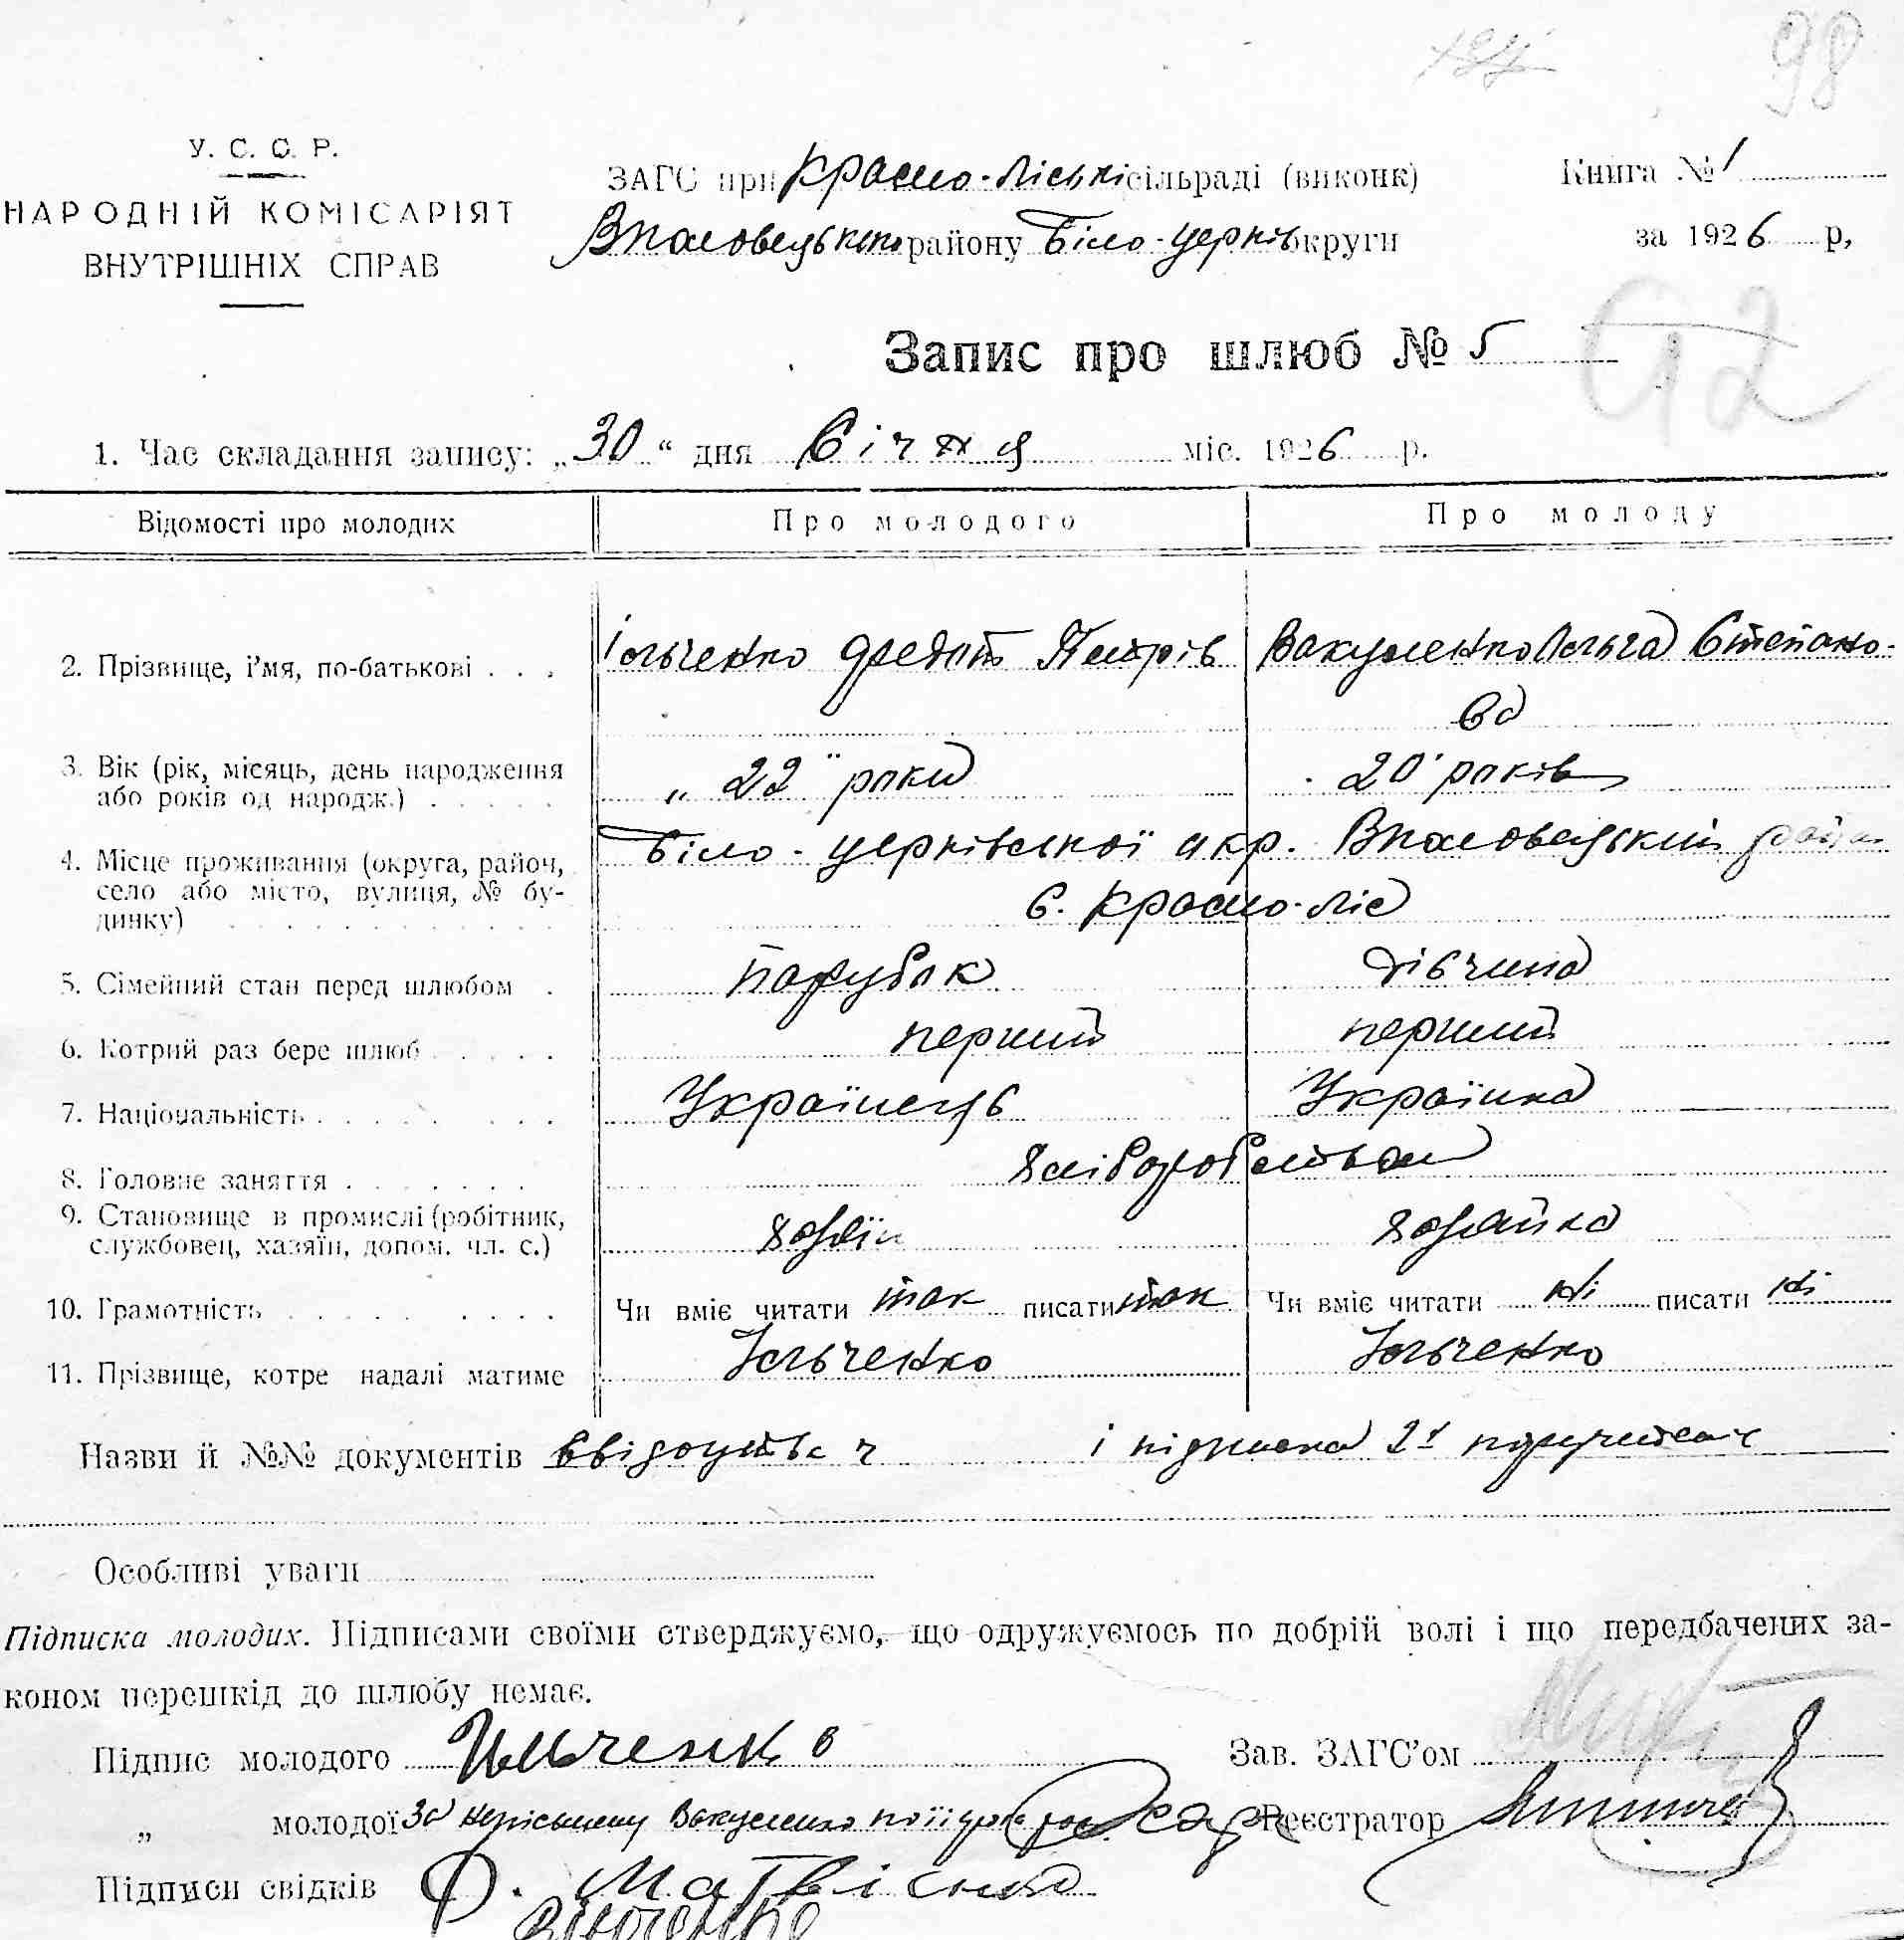 98
У. С. С. Р.
НАРОДНІЙ КОМІСАРІЯТ
ВНУТРІШНІХ СПРАВ
ЗАГС при Красно-Ліській сільраді (виконк)
Книга № 1
району Біло-Церків округи
за 1926 р,
Запис про шлюб № 5
1. Час складання запису: „30“ дня Січня міс. 1926 р.
Відомості про молодих
Про молодого
Про молоду
2. Прізвище, і'мя, по-батькові . . .
Ільченко Федот Петрів
Вакуленко Ольга Степано-
ва
3. Вік (рік, місяць, день народження
або років од народж.) . . . . .
„ 22 " роки
20 років
4. Місце проживання (округа, район,
село або місто, вулиця, № бу-
динку)
Біло-церківської окр.
с. Красно-Ліс
5. Сімейний стан перед шлюбом .
парубок
дівчина
6. Котрий раз бере шлюб . . . . .
перший
перший
7. Національність . . . . .
Українець
Українка
8. Головне заняття . . . . . .
Хліборобством
9. Становище в промислі (робітник,
службовец, хазяїн, допом. чл. с.)
хазяїн
хазяйка
10. Грамотність . . . . .
Чи вміє читати так писати так
Чи вміє читати ні писати ні
11. Прізвище, котре надалі матиме
Ільченко
Ільченко
Назви й №№ документів і підписка 2х
Особливі уваги
Підписка молодих. Підписами своїми стверджуємо, що одружуємось по добрій волі і що передбачених за-
коном перешкід до шлюбу немає.
Підпис молодого Ильченко
Зав. ЗАГС'ом
„ молодої За неписьмену Вакуленко
Реєстратор
Підписи свідків Ф. Матвієнко